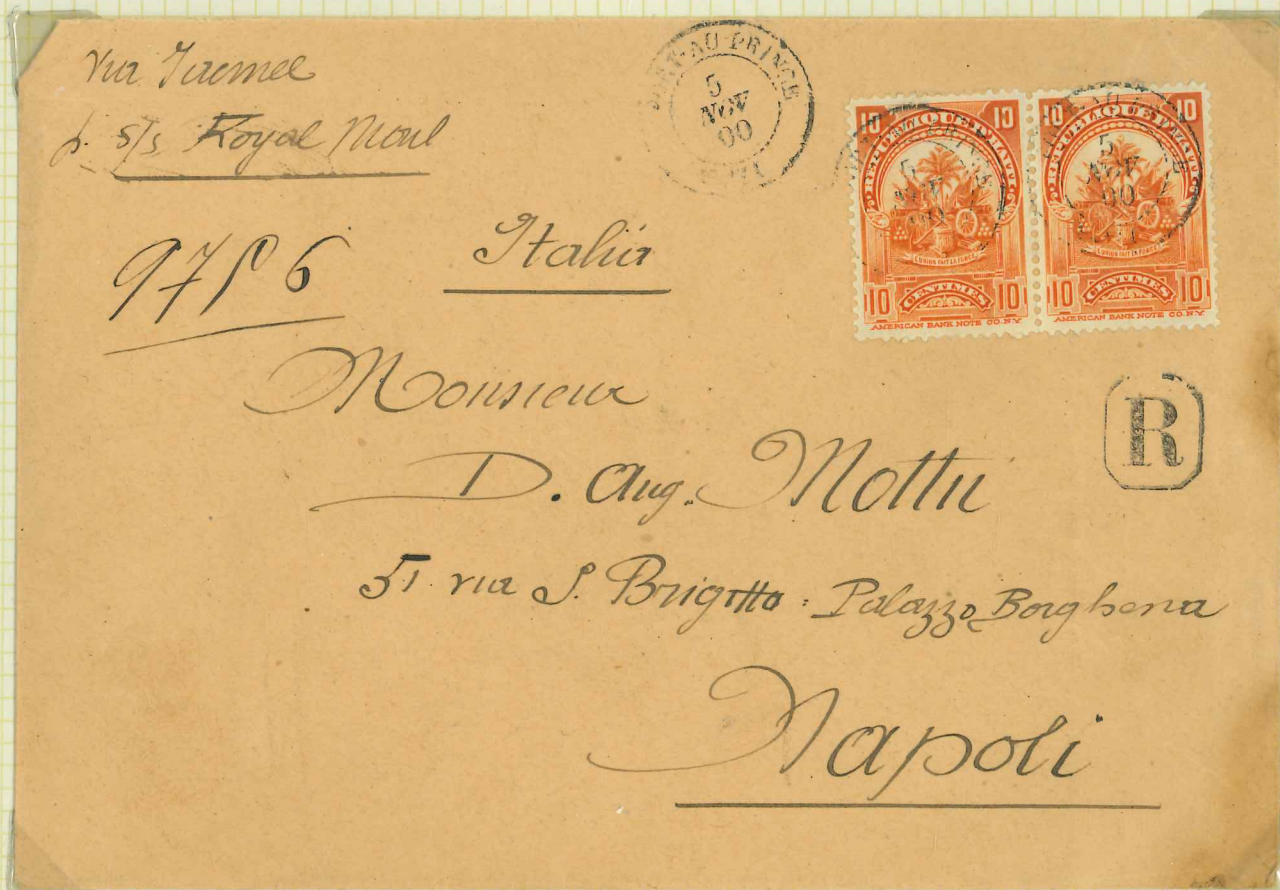 via Jacmel
p. s/s Royal Mail
PORT-AU-PRINCE
5
NOV
00
HAITI
10 10
REPUBLIQUE D'HAITI
5
NOV
00
L'UNION FAIT LA FORCE
10 CENTIMES 10
AMERICAN BANK NOTE CO. N.Y.
10 10
REPUBLIQUE D'HAITI
5
NOV
00
HAITI
L'UNION FAIT LA FORCE
10 CENTIMES 10
AMERICAN BANK NOTE CO. N.Y.
Italia
Monsieur
R
D. Aug. Mottu
51 via S. Brigitta: Palazzo Borghena
Napoli